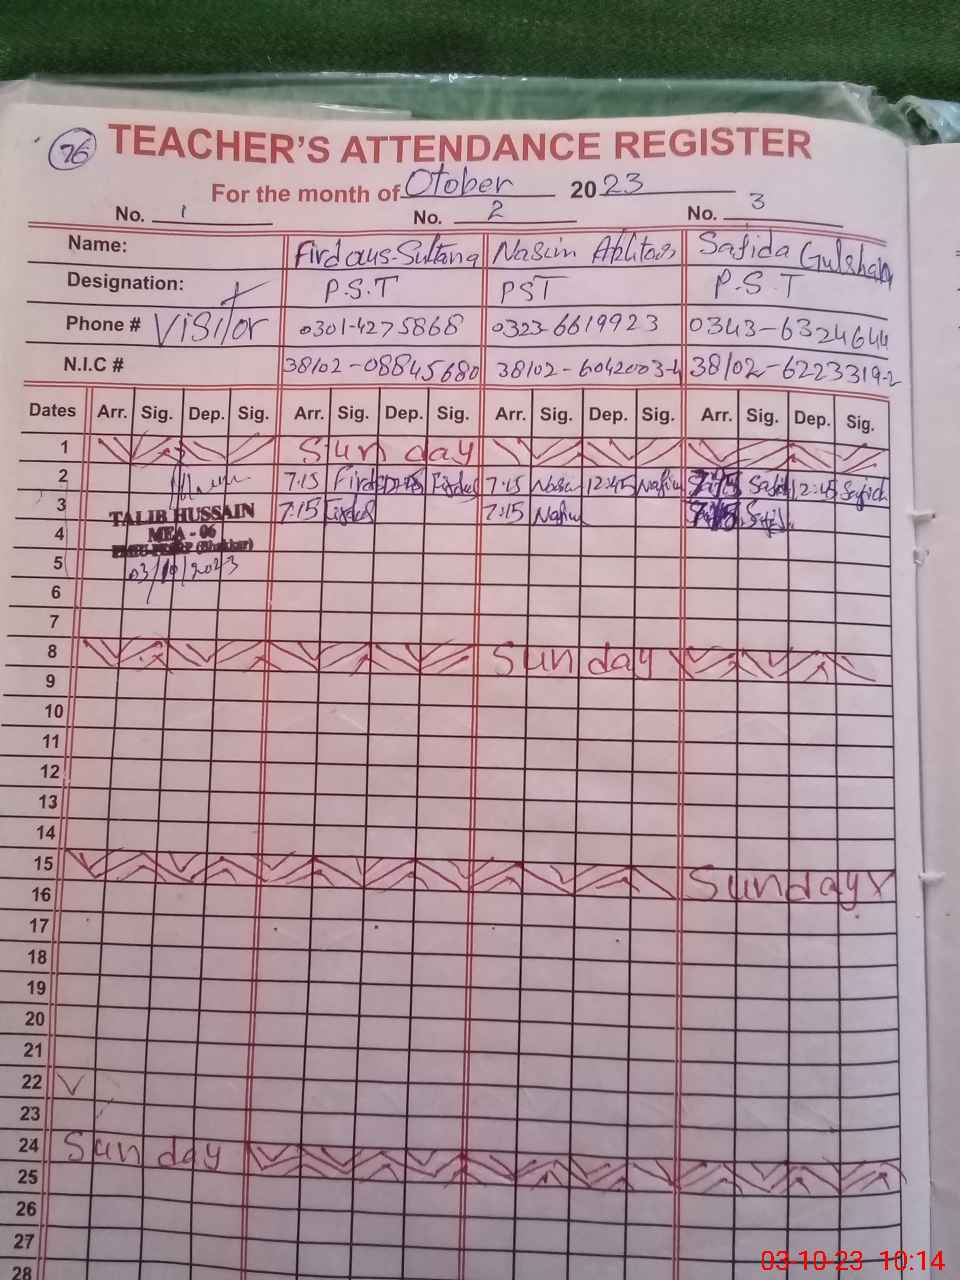 76
TEACHER'S ATTENDANCE REGISTER
For the month of Otober 2023
No. 1 No. 2 No. 3
Name: Firdous-Sultana Nasim Akhtar Safida Gulshan
Designation: P.S.T PST P.S.T
Phone # Visitor 0301-4275868 0323-6619923 0343-6324644
N.I.C # 38102-08845680 38102-6042003-4 38102-6223319-2
Dates Arr. Sig. Dep. Sig. Arr. Sig. Dep. Sig. Arr. Sig. Dep. Sig. Arr. Sig. Dep. Sig.
1 Sunday
2 7:15 12:45 7:15 12:45 7:15 12:45
3 7:15 7:15 7:15
TALIB HUSSAIN
4 MEA - 06
(Bhakkar)
5 03/10/2023
6
7
8 Sunday
9
10
11
12
13
14
15 Sunday
16
17
18
19
20
21
22
23
24 Sunday
25
26
27
28
03-10-23 10:14